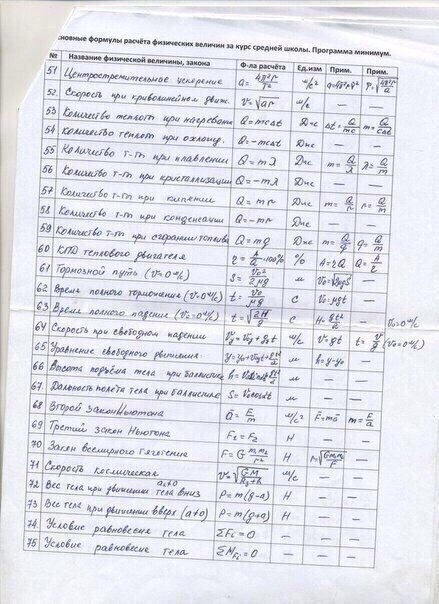 сновные формулы расчёта физических величин за курс средней школы. Программа минимум.
№ Название физической величины, закона Ф-ла расчёта Ед.изм Прим. Прим.
51 Центростремительное ускорение a=4π²r/T² м/с² a=4π²rν² T=√4π²r/a
52. Скорость при криволинейном движ. V=√ar м/с — —
53 Количество теплот при нагревани Q=mcΔt Дж Δt=Q/mc m=Q/cΔt
54 Количество теплот при охлажд. Q=-mcΔt Дж — —
55 Количество т-ты при плавлении Q=mλ Дж m=Q/λ λ=Q/m
56 Количество т-ты при кристаллизации Q=-mλ Дж — —
57 Количество т-ты при кипении Q=mr Дж m=Q/r r=Q/m
58 Количество т-ты при конденсации Q=-mr Дж — —
59 Количество т-ты при сгорании топлива Q=mq Дж m=Q/q q=Q/m
60 КПД теплового двигателя η=A/Q·100% % A=ηQ Q=A/η
61 Тормозной путь (V=0м/с) S=V₀²/2μg м V₀=√2μgS —
62 Время полного торможения (V=0м/с) t=V₀/μg с V₀=μgt —
63 Время полного падения (V₀=0м/с) t=√2H/g с H=gt²/2 —
64 Скорость при свободном падении м/с V=gt t=V/g (V₀=0м/с)
65 Уравнение свободного движения м h=y-y₀ —
66 Высота подъёма тела при баллистике м — —
67 Дальность полёта тела при баллистике S=V₀cosαt м — —
68 Второй закон Ньютона a=F/m м/с² F=ma m=F/a
69 Третий закон Ньютона F₁=F₂ Н — —
70 Закон всемирного тяготения F=G m₁m₂/r² Н r=√Gm₁m₂/F —
71 Скорость космическая V=√GM/R₃+h м/с — —
72 Вес тела при движении тела вниз a≠0 P=m(g-a) Н — —
73 Вес тела при движении вверх (a≠0) P=m(g+a) Н — —
74. Условие равновесия тела ΣFi=0 — — —
75 Условие равновесие тела ΣMFi=0 — — —